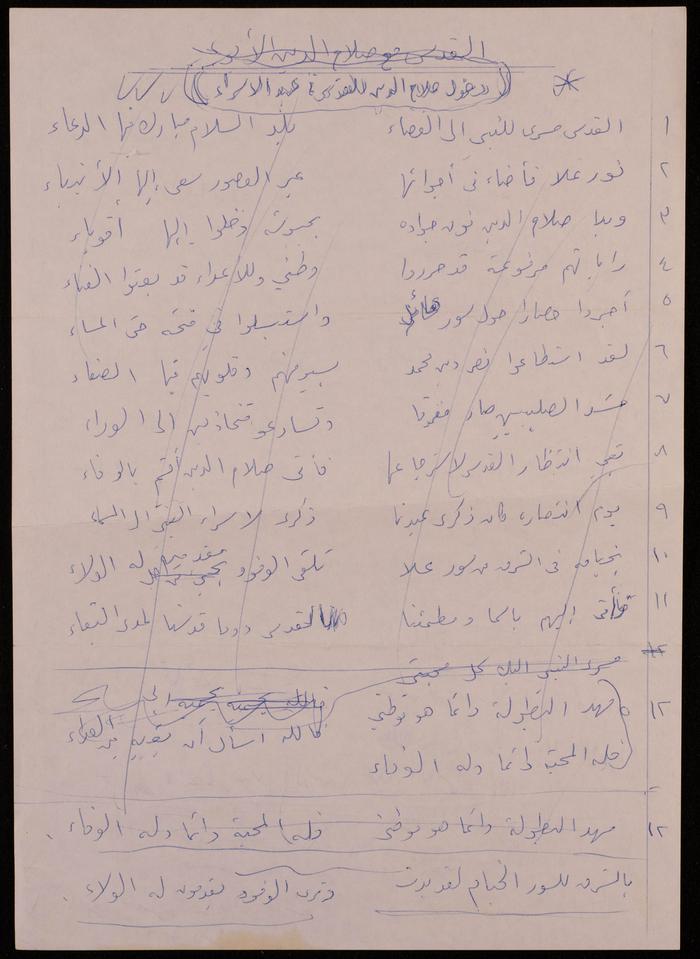 القدس مع صلاح الدين الأيوبي
دخول صلاح الدين للقدس في عيد الاسراء
١ القدس مسرى للنبي الى الفضاء بلد السلام مبارك فيها الدعاء
٢ نور علا فأضاء في أجوائها عبر العصور سعى إليها الأنبياء
٣ وبدا صلاح الدين فوق جواده بجيوشه دخلوا إليها أقوياء
٤ راياتهم مرفوعة قد حرروا وطني وللأعداء قد بعثوا الفناء
٥ أجروا حصارا حول سور هائل واستبسلوا في فتحه حتى المساء
٦ لقد استطاعوا نصر دين محمد بسيوفهم وقلوبهم فيها الصفاء
٧ حشد الصليبيين صار مفرقا وتسارعو متخاذلين الى الوراء
٨ انتظار القدس لاسترجاعها فأتى صلاح الدين أقسم بالوفاء
٩ يوم انتصاره كان ذكرى عيدنا ذكرى لاسراء النبي الى السماء
١٠ بخيامه في الشرق من سور علا تلقى الوفود مقدمين له الولاء
١١ فأتى إليهم باسما ومطمئنا القدس دوما قدسنا لمدى البقاء
١٢ مسرى النبي اليك كل محبتي
١٢ مهد البطولة دائما هو موطني فالله اسأل أن
فله المحبة دائما وله الوفاء
١٢ مهد البطولة دائما هو موطني فله المحبة دائما وله الوفاء.
بالشرق للسور الخيام لقد بدت وترى الوفود يقدمون له الولاء.